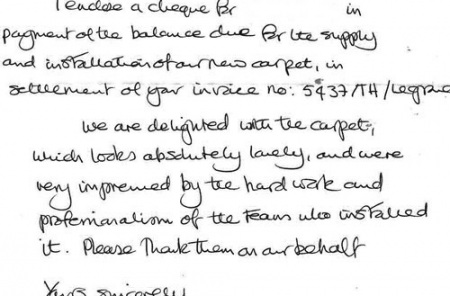 I enclose a cheque for in
payment of the balance due for the supply
and installation of our new carpet, in
settlement of your invoice no: 5437/TH/Legrand
We are delighted with the carpet,
which looks absolutely lovely, and were
very impressed by the hard work and
professionalism of the teams who installed
it. Please thank them on our behalf
Yours sincerely